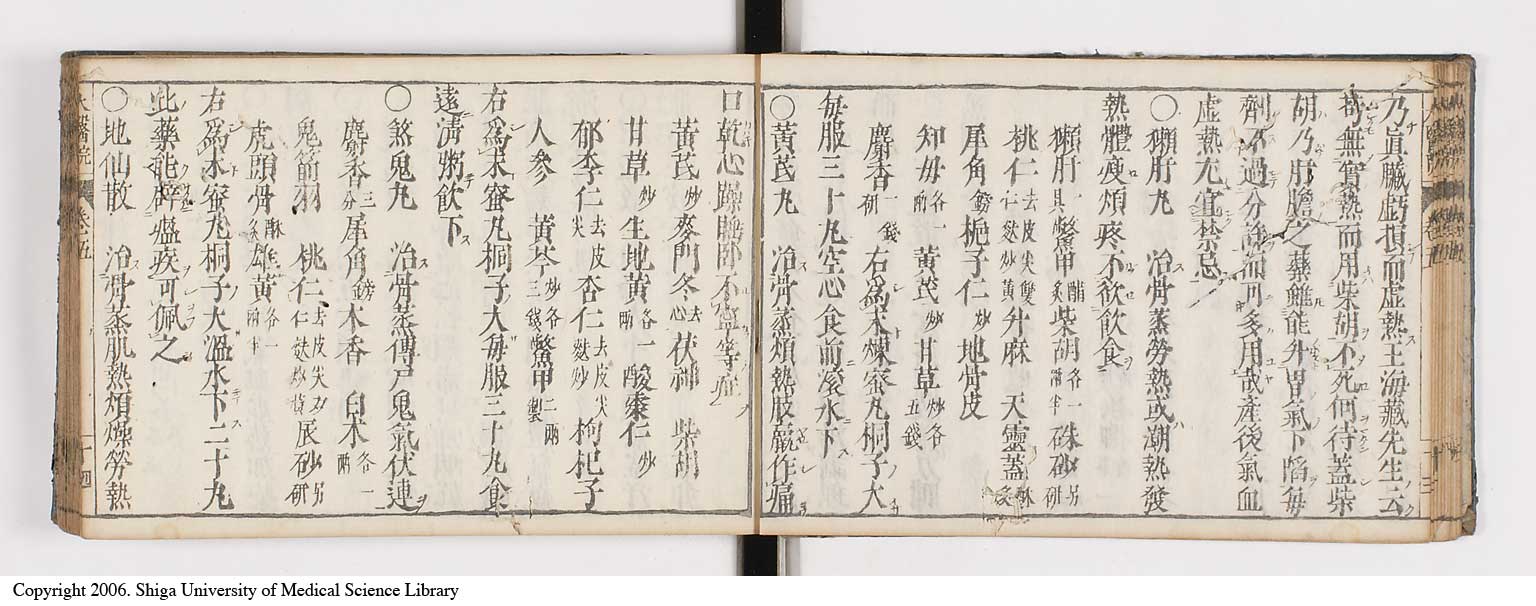 乃眞臟虧損而虚熱王海藏先生云
苟無實熱而用柴胡不死何待蓋柴
胡乃肝膽之藥雖能升胃氣下陷毎
劑不過分許而可多用哉産後氣血
虚熱尤宜禁忌
〇獺肝丸 治骨蒸勞熱或潮熱發
熱體瘦煩疼不欲飲食
獺肝一具鱉甲醋炙柴胡各一兩半硃砂另研
桃仁去皮尖雙仁麩炒黄升麻 天靈蓋酥炙
犀角鎊梔子仁炒地骨皮
知毋各一兩黄芪炒甘草炒各五錢
麝香一錢研右爲末煉蜜丸桐子大
毎服三十丸空心食前滚水下
〇黄芪丸 治骨蒸煩熱肢羸作痛
口乾心躁睡卧不寧等症
黄芪炒麥門冬去心茯神 柴胡
甘草炒生地黄各一兩酸棗仁炒
郁李仁去皮尖杏仁去皮尖麩炒枸杞子
人參 黄芩炒各三錢鱉甲二兩製
右爲末蜜丸桐子大毎服三十丸食
遠清粥飲下
〇煞鬼丸 治骨蒸傳尸鬼氣伏連
麝香三分犀角鎊木香 白术各一兩
鬼箭羽 桃仁去皮尖双仁麩炒黄辰砂另研
虎頭骨酥炙雄黄各一兩半
右爲末蜜丸桐子大温水下二十丸
此藥能辟瘟疾可佩之
〇地仙散 治骨蒸肌熱煩燥勞熱
Copyright 2006. Shiga University of Medical Science Library